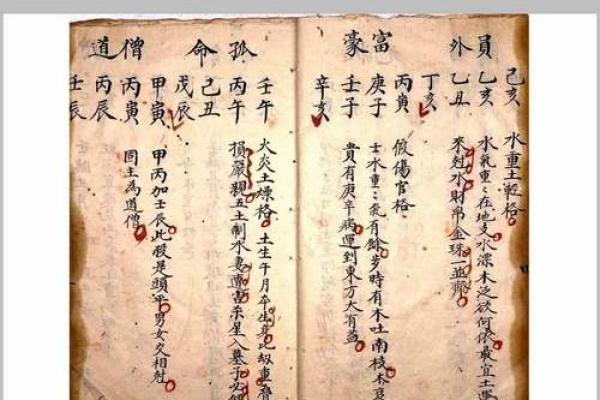 員外
己亥
乙亥
乙丑
丁亥
水重土輕格
水氣重々在地支水漂木泛欲何依最宜土運
來尅水財帛金珠一並齊
富豪
丙寅
庚子
壬子
辛亥
假傷官格
水重々氣有餘歩時有木吐南枝
貴有庚辛病運到東方大有益
孤命
壬午
丙午
己丑
戊辰
火炎土燥格 土生午月
損嚴親五土制水妻 星入墓子必
僧道
甲寅
丙寅
丙辰
壬辰
甲丙加壬辰此殺是頭平男女交相尅
主為道僧